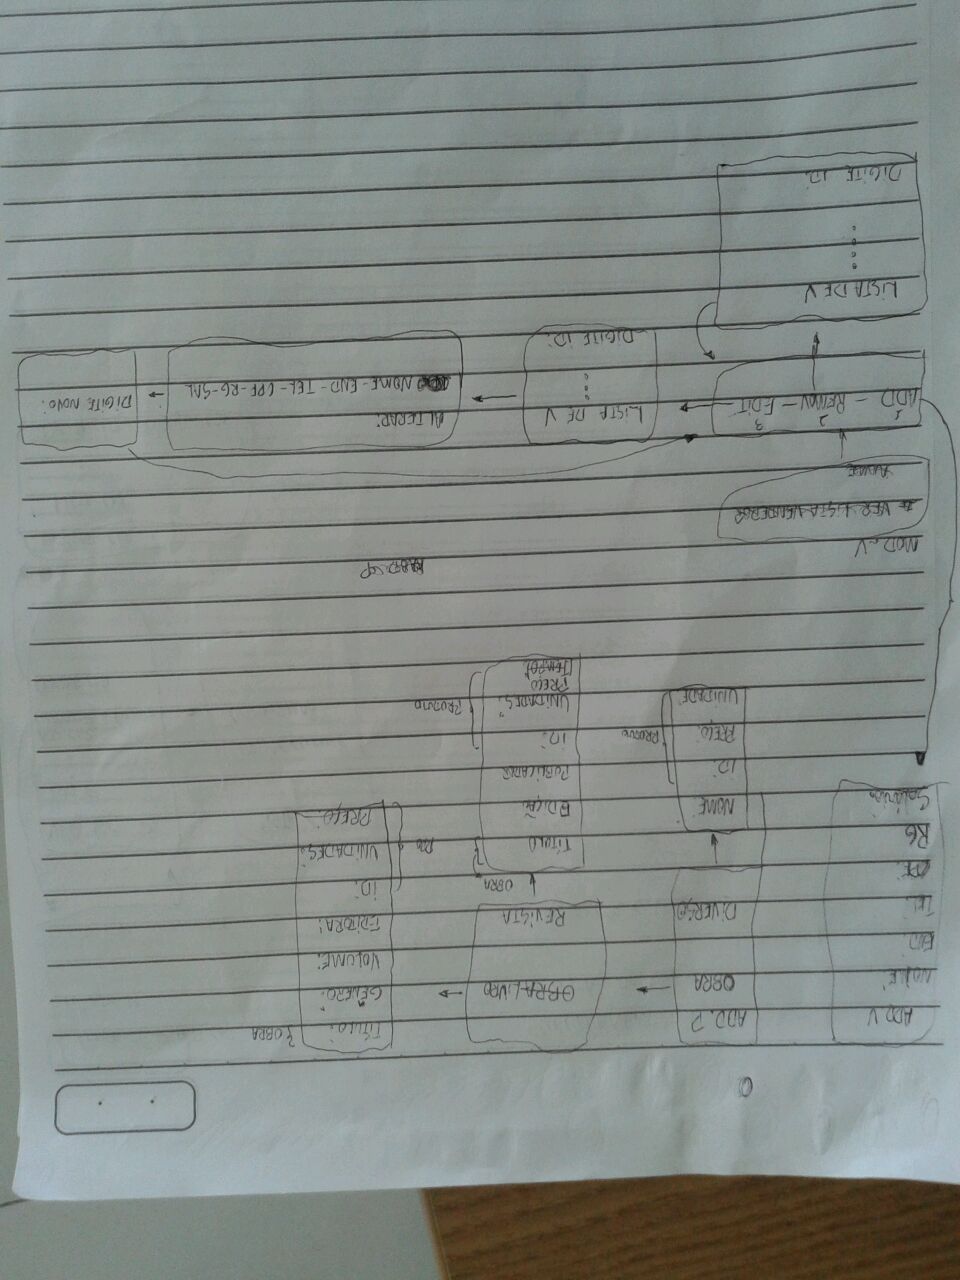 ADD.V
NOME:
END:
TEL:
CPF:
RG
Salário:
ADD.P
OBRA
DIVERSO
NOME:
ID:
PREÇO:
UNIDADE:
PRODUTO
OBRA-LIVRO
REVISTA
OBRA
TÍTULO
EDIÇÃO
PUBLICADOR
ID:
UNIDADES:
PREÇO
PRODUTO
TÍTULO:
OBRA
GÊNERO:
VOLUME:
EDITORA:
ID:
UNIDADES:
PREÇO:
MOD.V
VER LISTA VENDEDOR
1 2 3
ADD - REMOV - EDIT
LISTA DE V
DIGITE ID:
ALTERAR:
NOME-END-TEL-CPF-RG-SAL
DIGITE NOVO:
LISTA DE V
DIGITE ID: